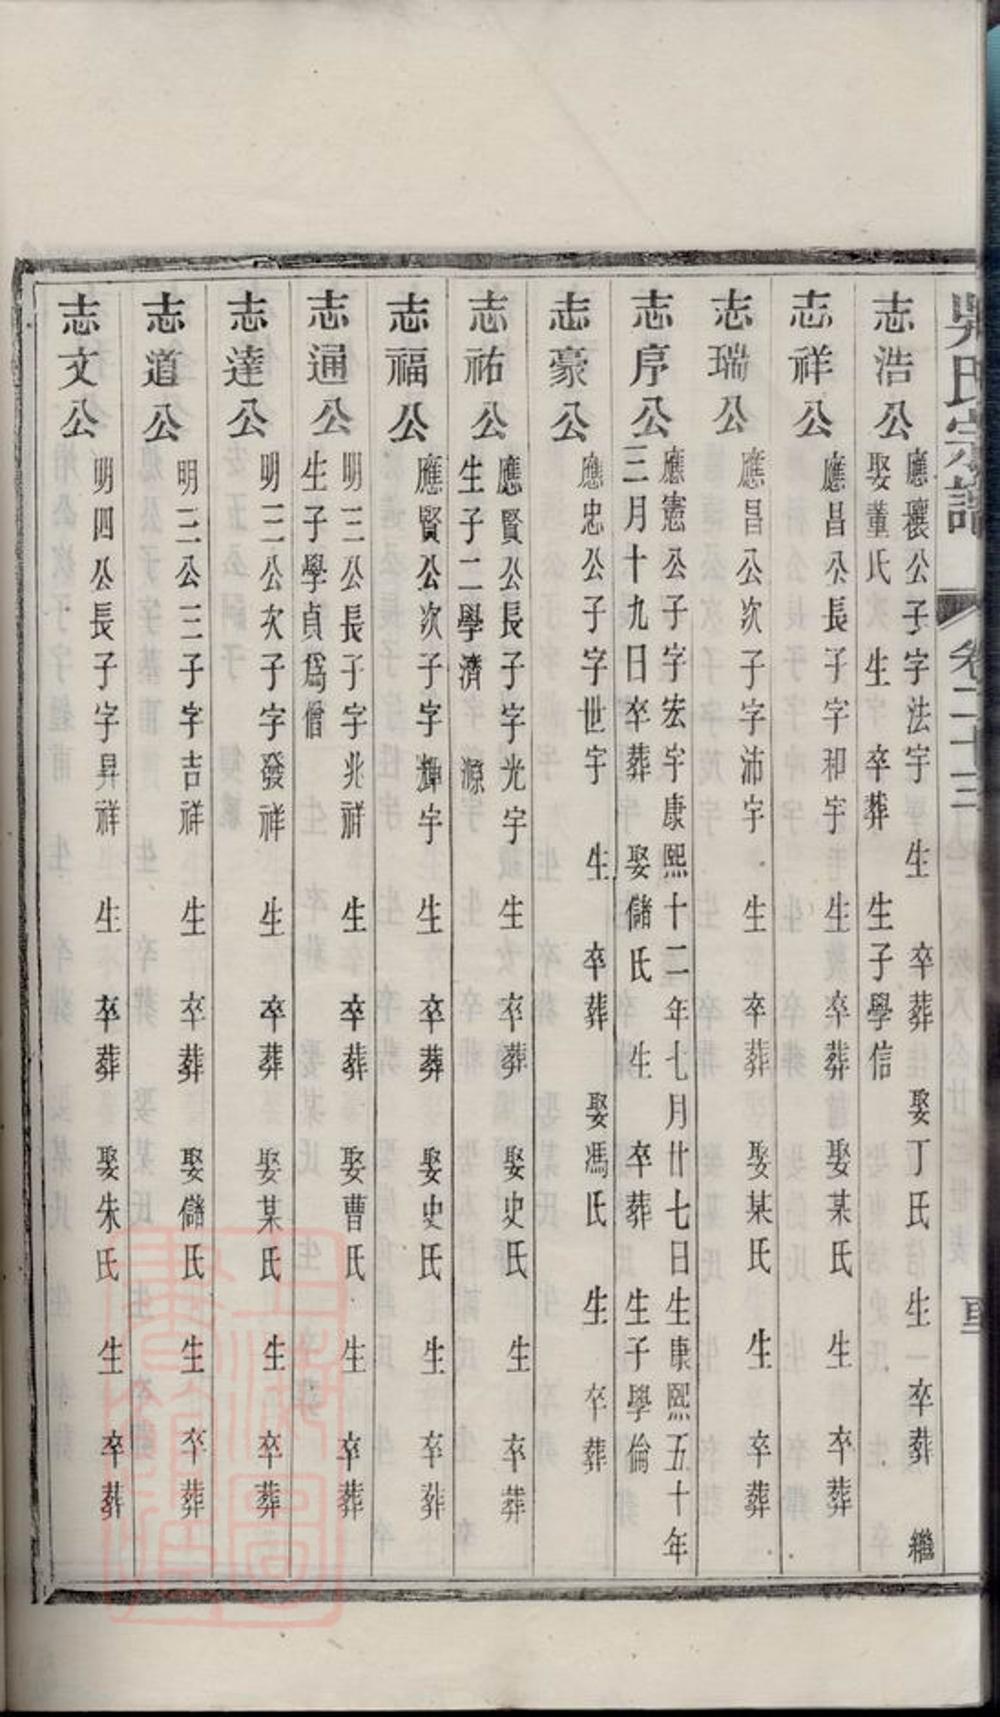 吳氏宗譜 卷二十三
志浩公
應穰公子字法宇 生 卒葬 娶丁氏 生 卒葬 繼
娶董氏 生 卒葬 生子學信
志祥公
應昌公長子字和宇 生 卒葬 娶某氏 生 卒葬
志瑞公
應昌公次子字沛宇 生 卒葬 娶某氏 生 卒葬
志序公
應憲公子字宏宇康熙十二年七月廿七日生康熙五十年
三月十九日卒葬 娶儲氏 生 卒葬 生子學倫
志豪公
應忠公子字世宇 生 卒葬 娶馮氏 生 卒葬
志祐公
應賢公長子字光宇 生 卒葬 娶史氏 生 卒葬
生子二學濟 源
志福公
應賢公次子字輝宇 生 卒葬 娶史氏 生 卒葬
志通公
明三公長子字兆祥 生 卒葬 娶曹氏 生 卒葬
生子學貞為僧
志達公
明三公次子字發祥 生 卒葬 娶某氏 生 卒葬
志道公
明三公三子字吉祥 生 卒葬 娶儲氏 生 卒葬
志文公
明四公長子字昇祥 生 卒葬 娶朱氏 生 卒葬